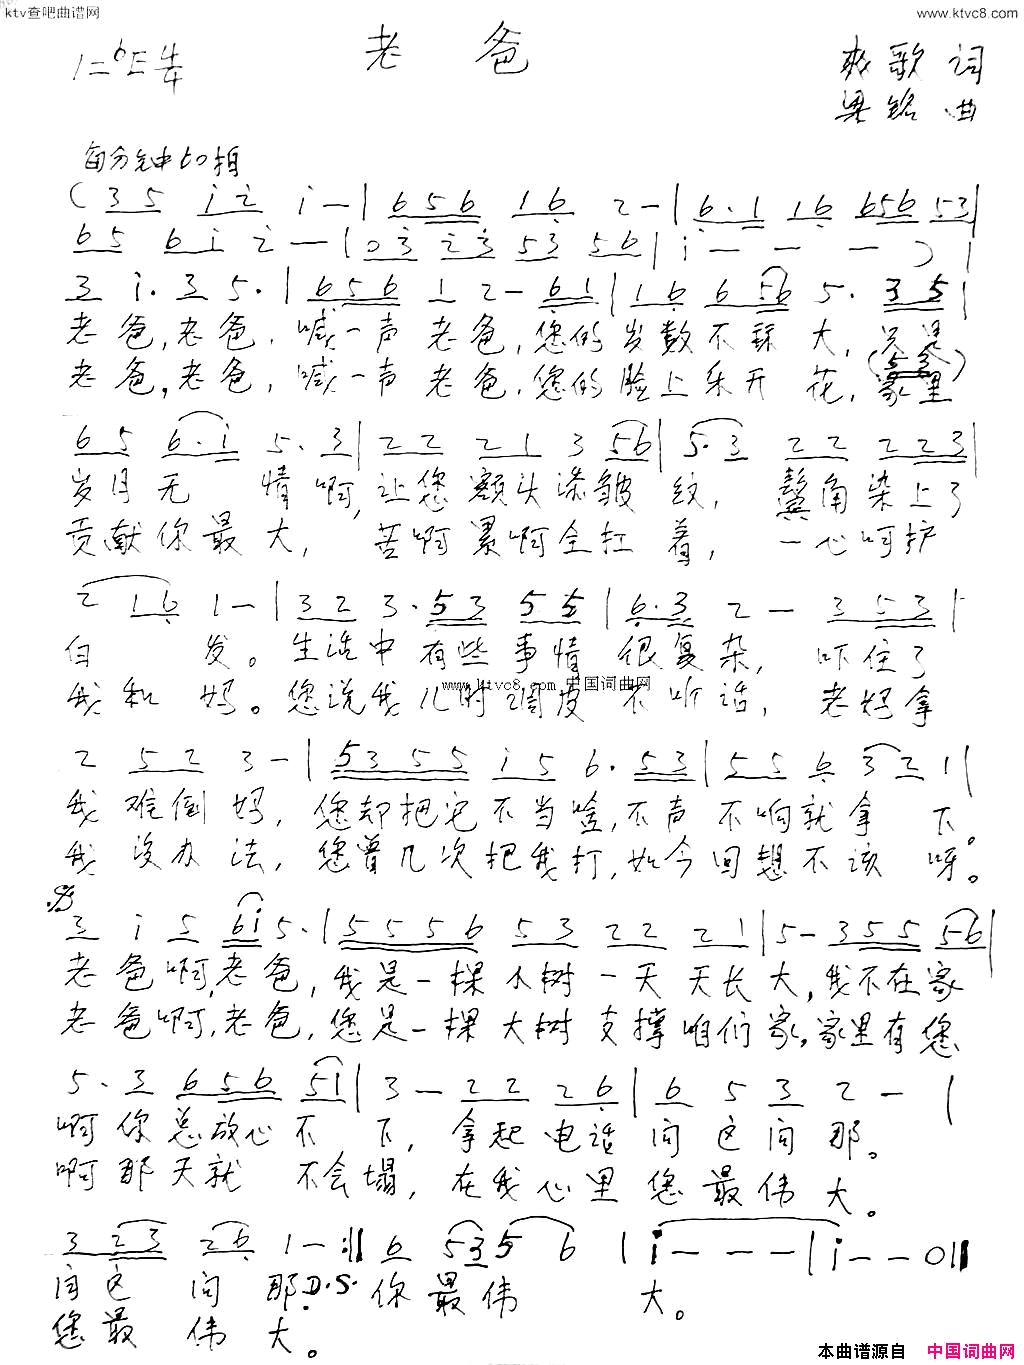 ktv查吧曲谱网
www.ktvc8.com
老 爸
1=bE 4/4
爽歌 词
梁铭 曲
每分钟60拍
(3 5 i 2 i - | 6 5 6 1 6 2 - | 6·1 1 6 6 5 6 5 3 |
6 5 6 i 2 - - | 0 3 2 3 5 3 5 6 | i - - - ) |
3 i· 3 5· | 6 5 6 1 2 - 6 1 | 1 6 6 5 6 5· 3 5 |
老爸,老爸,喊一声 老爸,您的岁数不算大,只是
(5 3)
老爸,老爸,喊一声 老爸,您的脸上乐开花,家里
6 5 6·i 5· 3 | 2 2 2 1 3 5 6 | 5·3 2 2 2 2 3 |
岁月无 情啊,让您额头添皱纹, 鬓角染上了
贡献你最大, 苦啊累啊全扛着, 一心呵护
2 1 6 1 - | 3 2 3· 5 3 5 5 | 6·3 2 - 3 5 3 |
白 发。生活中有些事情 很复杂, 吓住了
我和 妈。您说我儿时调皮不听话, 老妈拿
www.ktvc8.com 中国词曲网
2 5 2 3 - | 5 3 5 5 i 5 6· 5 3 | 5 5 6 3 2 1 |
我难倒妈, 您却把它不当啥,不声不响就拿 下。
我没办法, 您曾几次把我打,如今回想不该 呀。
3 i 5 6 i 5· | 5 5 5 6 5 3 2 2 2 1 | 5 - 3 5 5 5 6 |
老爸啊,老爸,我是一棵小树一天天长大,我不在家
老爸啊,老爸,您是一棵大树支撑咱们家,家里有您
5· 3 6 5 6 5 1 | 3 - 2 2 2 6 | 6 5 3 2 - |
啊你总放心不 下, 拿起电话问这问那。
啊那天就 不会塌, 在我心里您最伟大。
3 2 3 2 6 1 - :|| 6 5 3 5 6 | i - - - | i - - 0 ||
问这 问 那D.S. 你最伟 大。
您最 伟 大。
本曲谱源自 中国词曲网